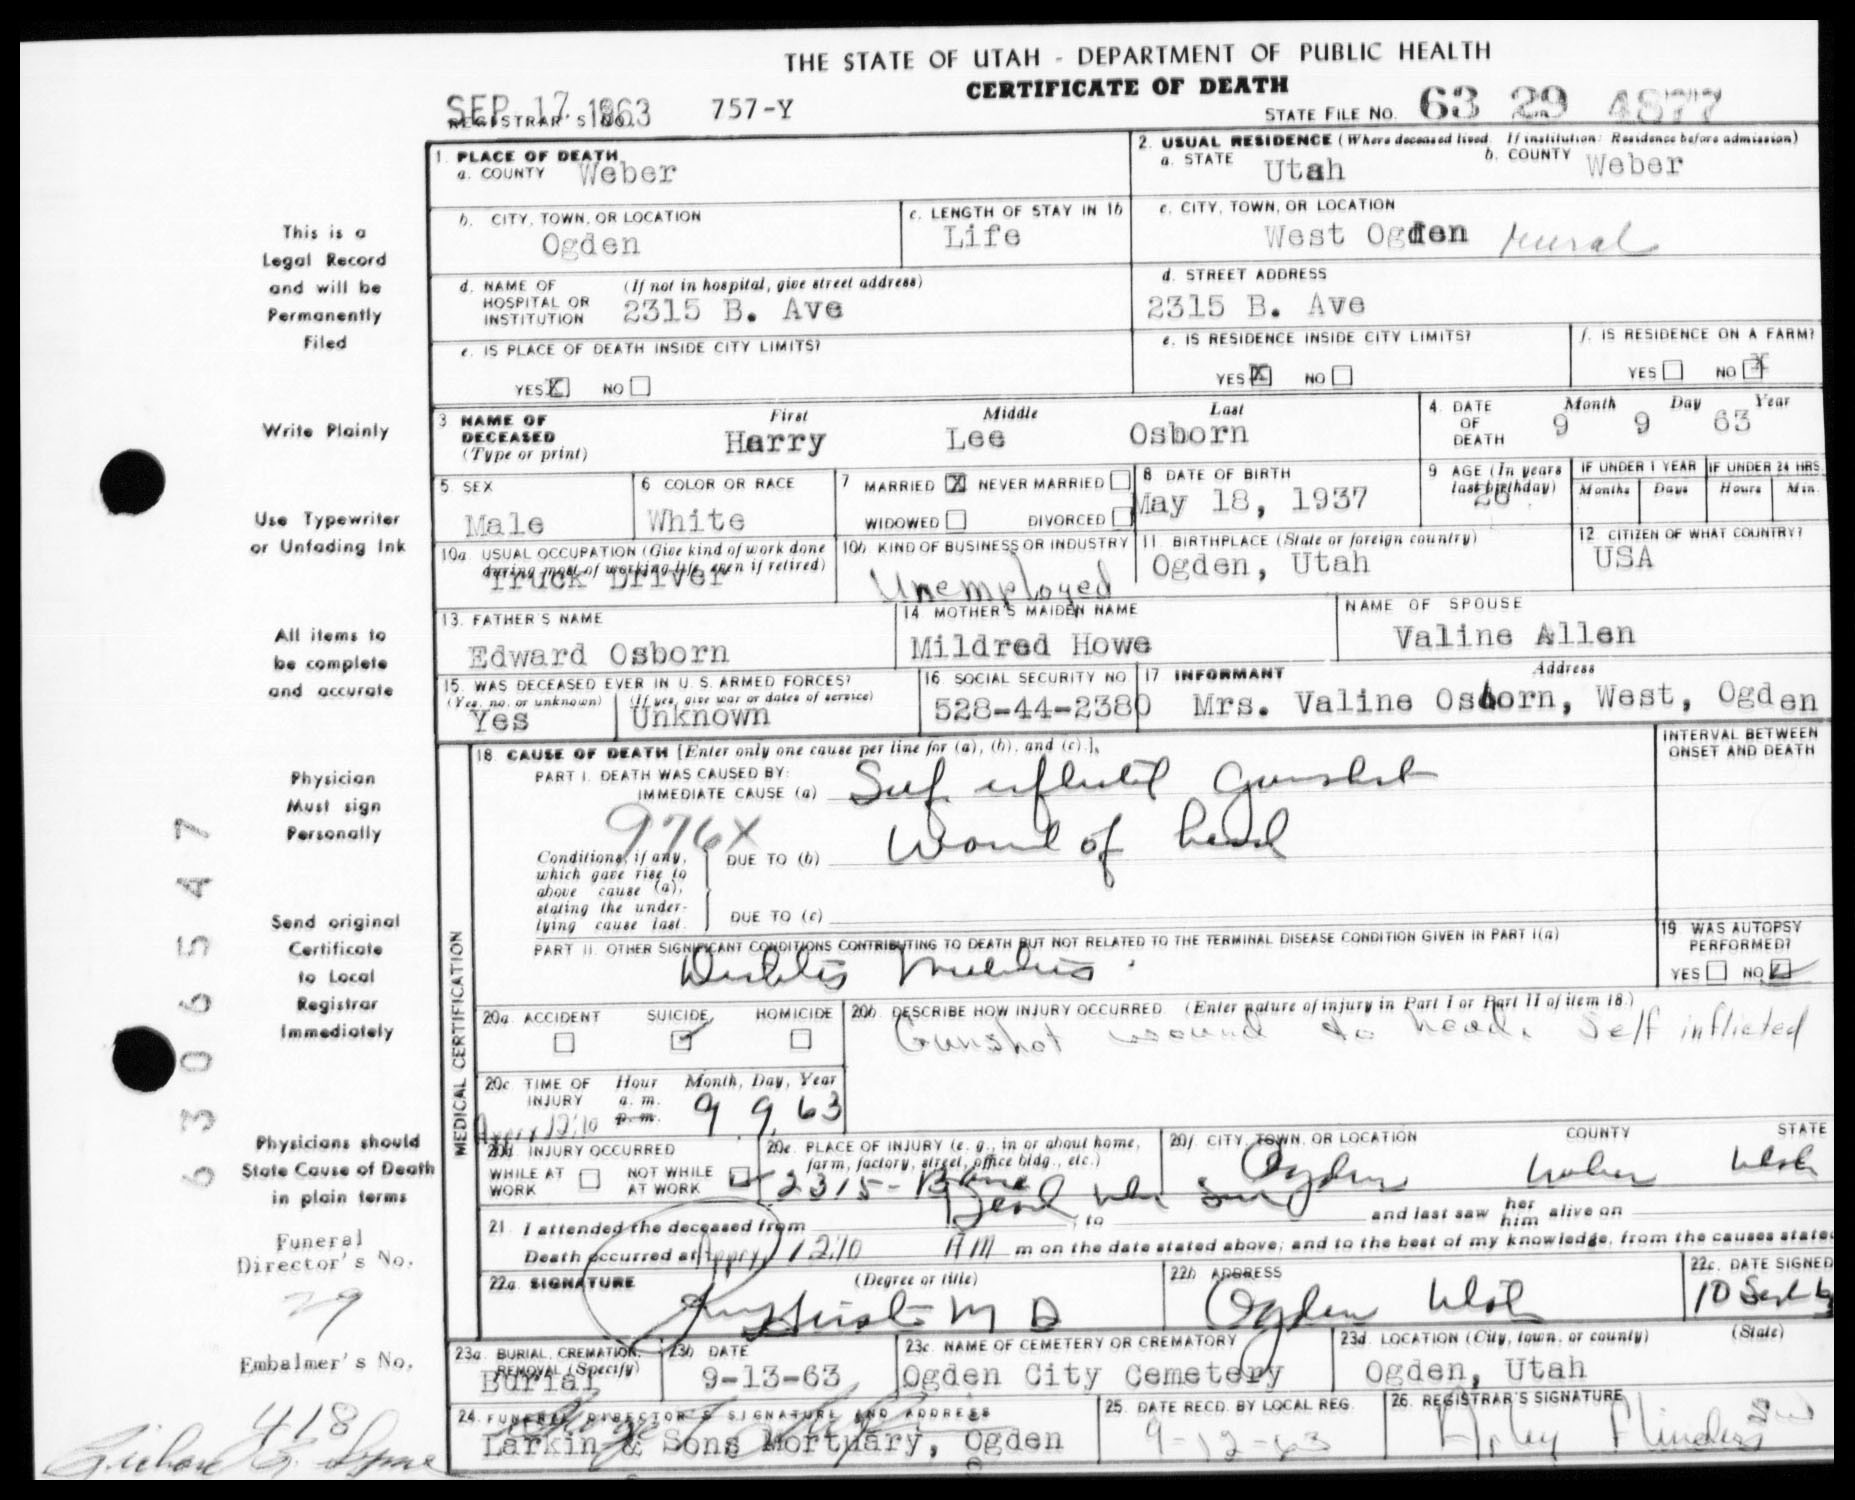 THE STATE OF UTAH - DEPARTMENT OF PUBLIC HEALTH
CERTIFICATE OF DEATH
SEP 17 1963 757-Y
REGISTRAR'S NO.
STATE FILE NO. 63 29 4877
This is a
Legal Record
and will be
Permanently
Filed
Write Plainly
Use Typewriter
or Unfading Ink
All items to
be complete
and accurate
Physician
Must sign
Personally
Send original
Certificate
to Local
Registrar
Immediately
Physicians should
State Cause of Death
in plain terms
Funeral
Director's No.
29
Embalmer's No.
418
Richard
6306547
1. PLACE OF DEATH
a. COUNTY Weber
2. USUAL RESIDENCE (Where deceased lived. If institution: Residence before admission)
a. STATE Utah b. COUNTY Weber
b. CITY, TOWN, OR LOCATION
Ogden
c. LENGTH OF STAY IN 1b
Life
c. CITY, TOWN, OR LOCATION
West Ogden rural
d. NAME OF HOSPITAL OR INSTITUTION (If not in hospital, give street address)
2315 B. Ave
d. STREET ADDRESS
2315 B. Ave
e. IS PLACE OF DEATH INSIDE CITY LIMITS?
YES X NO
e. IS RESIDENCE INSIDE CITY LIMITS?
YES X NO
f. IS RESIDENCE ON A FARM?
YES NO X
3 NAME OF DECEASED (Type or print)
First Middle Last
Harry Lee Osborn
4. DATE OF DEATH Month Day Year
9 9 63
5. SEX
Male
6 COLOR OR RACE
White
7 MARRIED X NEVER MARRIED
WIDOWED DIVORCED
8 DATE OF BIRTH
May 18, 1937
9 AGE (In years last birthday)
26
IF UNDER 1 YEAR
Months Days
IF UNDER 24 HRS.
Hours Min.
10a. USUAL OCCUPATION (Give kind of work done during most of working life, even if retired)
Truck Driver
10b KIND OF BUSINESS OR INDUSTRY
Unemployed
11 BIRTHPLACE (State or foreign country)
Ogden, Utah
12. CITIZEN OF WHAT COUNTRY?
USA
13. FATHER'S NAME
Edward Osborn
14 MOTHER'S MAIDEN NAME
Mildred Howe
NAME OF SPOUSE
Valine Allen
15. WAS DECEASED EVER IN U. S. ARMED FORCES?
(Yes, no, or unknown) (If yes, give war or dates of service)
Yes Unknown
16 SOCIAL SECURITY NO.
528-44-2380
17 INFORMANT Address
Mrs. Valine Osborn, West, Ogden
MEDICAL CERTIFICATION
18. CAUSE OF DEATH [Enter only one cause per line for (a), (b), and (c).]
INTERVAL BETWEEN ONSET AND DEATH
PART I. DEATH WAS CAUSED BY:
IMMEDIATE CAUSE (a) Self inflicted Gunshot
976X
Conditions, if any, which gave rise to above cause (a), stating the underlying cause last.
DUE TO (b) Wound of head
DUE TO (c)
PART II. OTHER SIGNIFICANT CONDITIONS CONTRIBUTING TO DEATH BUT NOT RELATED TO THE TERMINAL DISEASE CONDITION GIVEN IN PART I(a)
Diabetes Mellitus
19. WAS AUTOPSY PERFORMED?
YES NO
20a. ACCIDENT SUICIDE HOMICIDE
20b. DESCRIBE HOW INJURY OCCURRED. (Enter nature of injury in Part I or Part II of item 18.)
Gunshot wound to head. Self inflicted
20c TIME OF INJURY Hour Month, Day, Year
a. m.
p. m.
Appry 12:10 9 9, 63
20d. INJURY OCCURRED
WHILE AT WORK NOT WHILE AT WORK
20e. PLACE OF INJURY (e. g., in or about home, farm, factory, street, office bldg., etc.)
2315-B Ave
20f. CITY, TOWN, OR LOCATION COUNTY STATE
Ogden Weber Utah
21. I attended the deceased from Dead when seen, to and last saw her him alive on
Death occurred at Appry 12:10 AM m on the date stated above; and to the best of my knowledge, from the causes stated
22a. SIGNATURE (Degree or title)
M D
22b. ADDRESS
Ogden Utah
22c. DATE SIGNED
10 Sept 63
23a. BURIAL, CREMATION, REMOVAL (Specify)
Burial
23b DATE
9-13-63
23c. NAME OF CEMETERY OR CREMATORY
Ogden City Cemetery
23d. LOCATION (City, town, or county) (State)
Ogden, Utah
24. FUNERAL DIRECTOR'S SIGNATURE AND ADDRESS
Larkin & Sons Mortuary, Ogden
25. DATE RECD. BY LOCAL REG.
9-12-63
26. REGISTRAR'S SIGNATURE